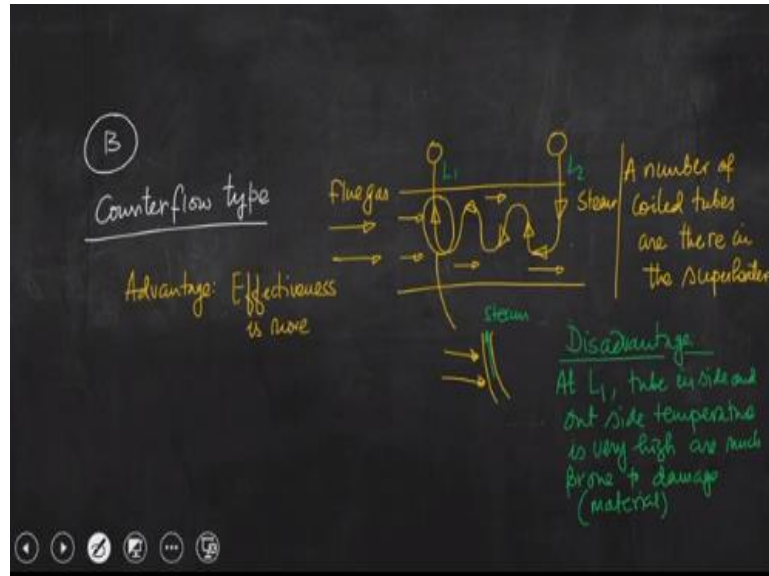 B
Counterflow type
Advantage: Effectiveness
is more
Flue gas
L1
L2
Steam
A number of
coiled tubes
are there in
the superheater
steam
Disadvantage
At L1, tube inside and
out side temperature
is very high are much
prone to damage
(material)